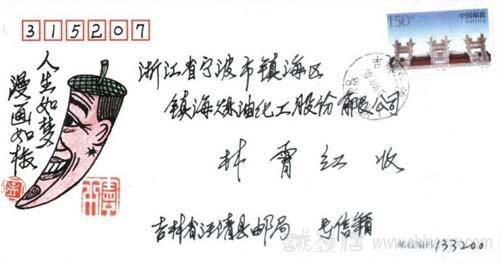 315207
150分
中国邮政
CHINA
浙江省宁波市镇海区
镇海炼油化工股份有限公司
林霄红 收
人生如梦
漫画如椒
吉林省汪清县邮局
邮政编码 133200